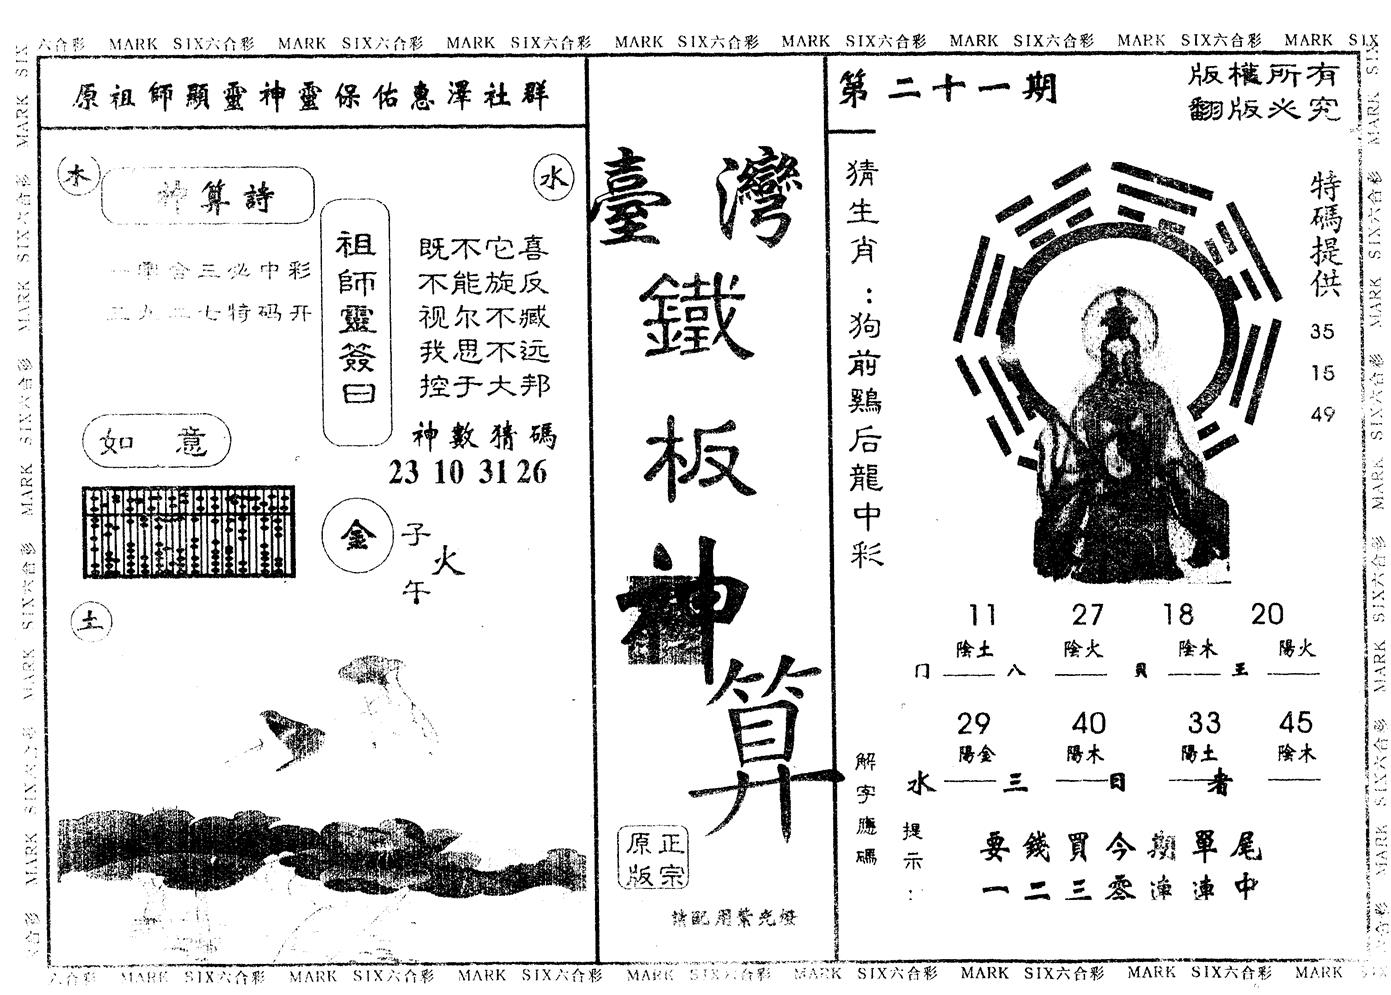 六合彩 MARK SIX六合彩 MARK SIX六合彩 MARK SIX六合彩 MARK SIX六合彩 MARK SIX六合彩 MARK SIX六合彩 MARK SIX六合彩 MARK SIX
原祖師顯靈神靈保佑惠澤社群
木
神算詩
水
一零合三必中彩
七特码开
祖師靈簽曰
既不它喜
不能旋反
视尔不臧
我思不远
控于大邦
神數猜碼
23 10 31 26
如意
金
子
火
午
土
臺灣
鐵
板
神
算
正宗
原版
請配用紫光燈
第二十一期
版權所有
翻版必究
猜生肖:狗前鷄后龍中彩
特碼提供
35
15
49
11 27 18 20
陰土 陰火 陰木 陽火
门 八 貝 王
29 40 33 45
陽金 陽木 陽土 陰木
水 三 日 者
解字應碼
提示:
要錢買今期單尾
一二三零連連中
六合彩 MARK SIX六合彩 MARK SIX六合彩 MARK SIX六合彩 MARK SIX六合彩 MARK SIX六合彩 MARK SIX六合彩 MARK SIX六合彩 MARK SIX